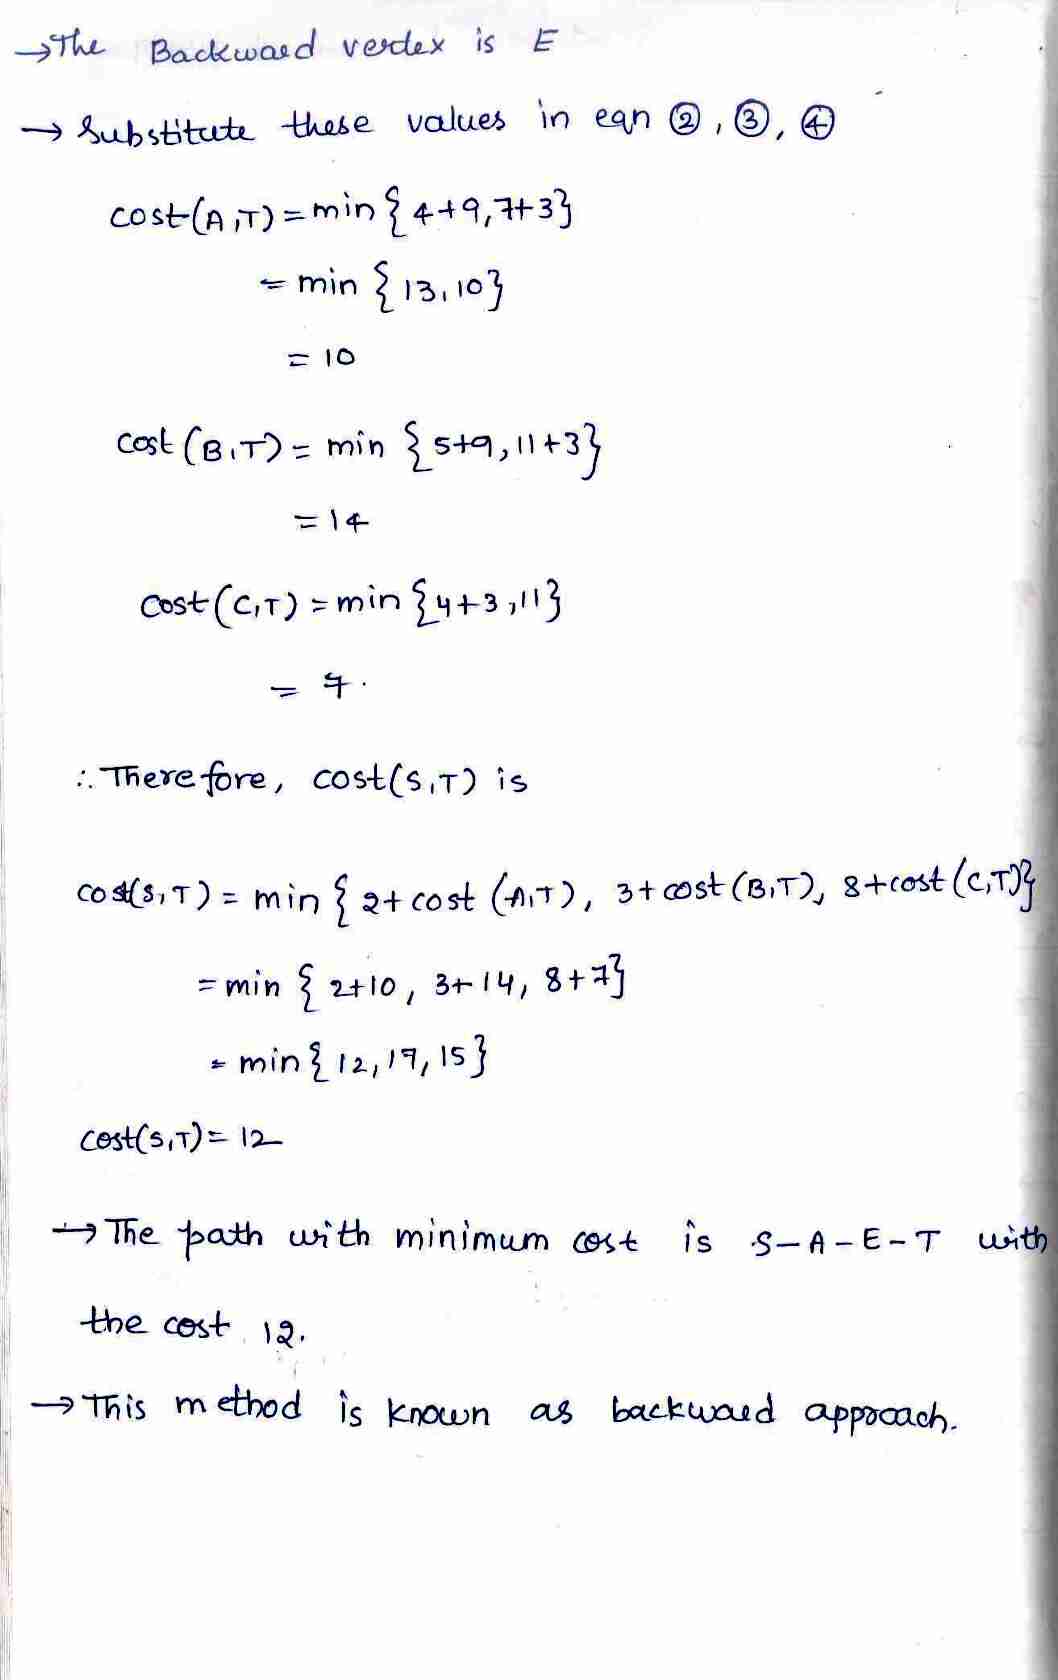 →The Backward vertex is E
→ Substitute these values in eqn ②, ③, ④
cost(A,T) = min{4+9,7+3}
= min {13,10}
= 10
cost (B,T) = min {5+9,11+3}
= 14
cost(C,T) = min{4+3,11}
= 7.
∴ Therefore, cost(S,T) is
cost(S,T) = min { 2+cost (A,T), 3+cost(B,T), 8+cost(C,T)}
= min { 2+10, 3+14, 8+7}
= min{12,17,15}
cost(S,T) = 12
→ The path with minimum cost is S-A-E-T with
the cost 12.
→ This method is known as backward approach.